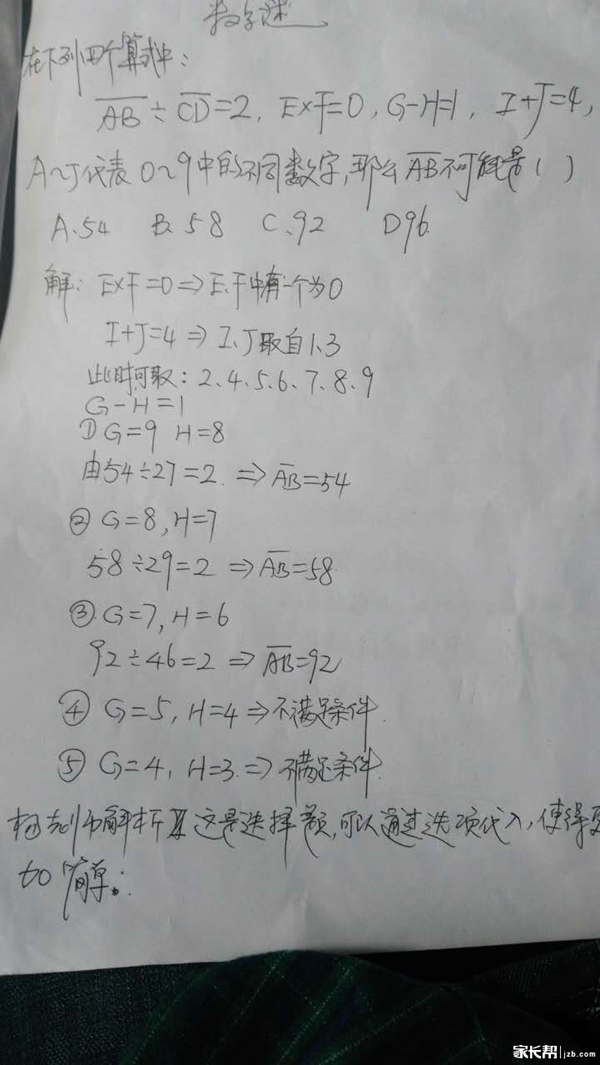 数字谜
在下列四个算式中:
AB÷CD=2, E×F=0, G-H=1, I+J=4,
A~J代表0~9中的不同数字,那么AB不可能是( )
A.54 B.58 C.92 D96.
解: E×F=0⇒E.F中有一个为0
I+J=4⇒I、J取自1、3
此时可取:2、4、5、6、7、8、9
G-H=1
①G=9 H=8
由54÷27=2.⇒AB=54
②G=8,H=7
58÷29=2⇒AB=58.
③.G=7,H=6
92÷46=2⇒AB=92
④G=5,H=4⇒不满足条件.
⑤G=4,H=3.⇒不满足条件.
解析 这是选择题,可以通过选项代入,使得更
简单.
家长帮 jzb.com